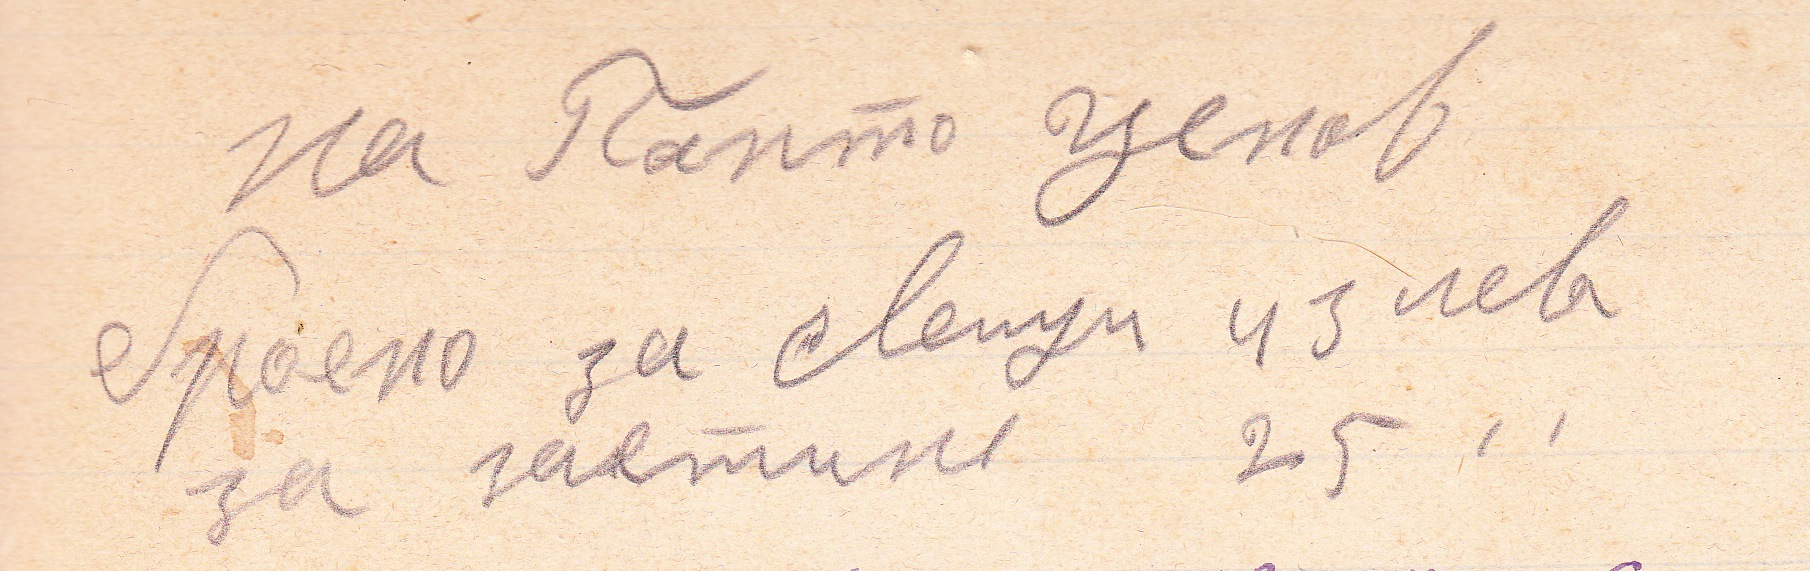 на Панто Ценов
броено за свещи 43 лева
за зайтин 25 "